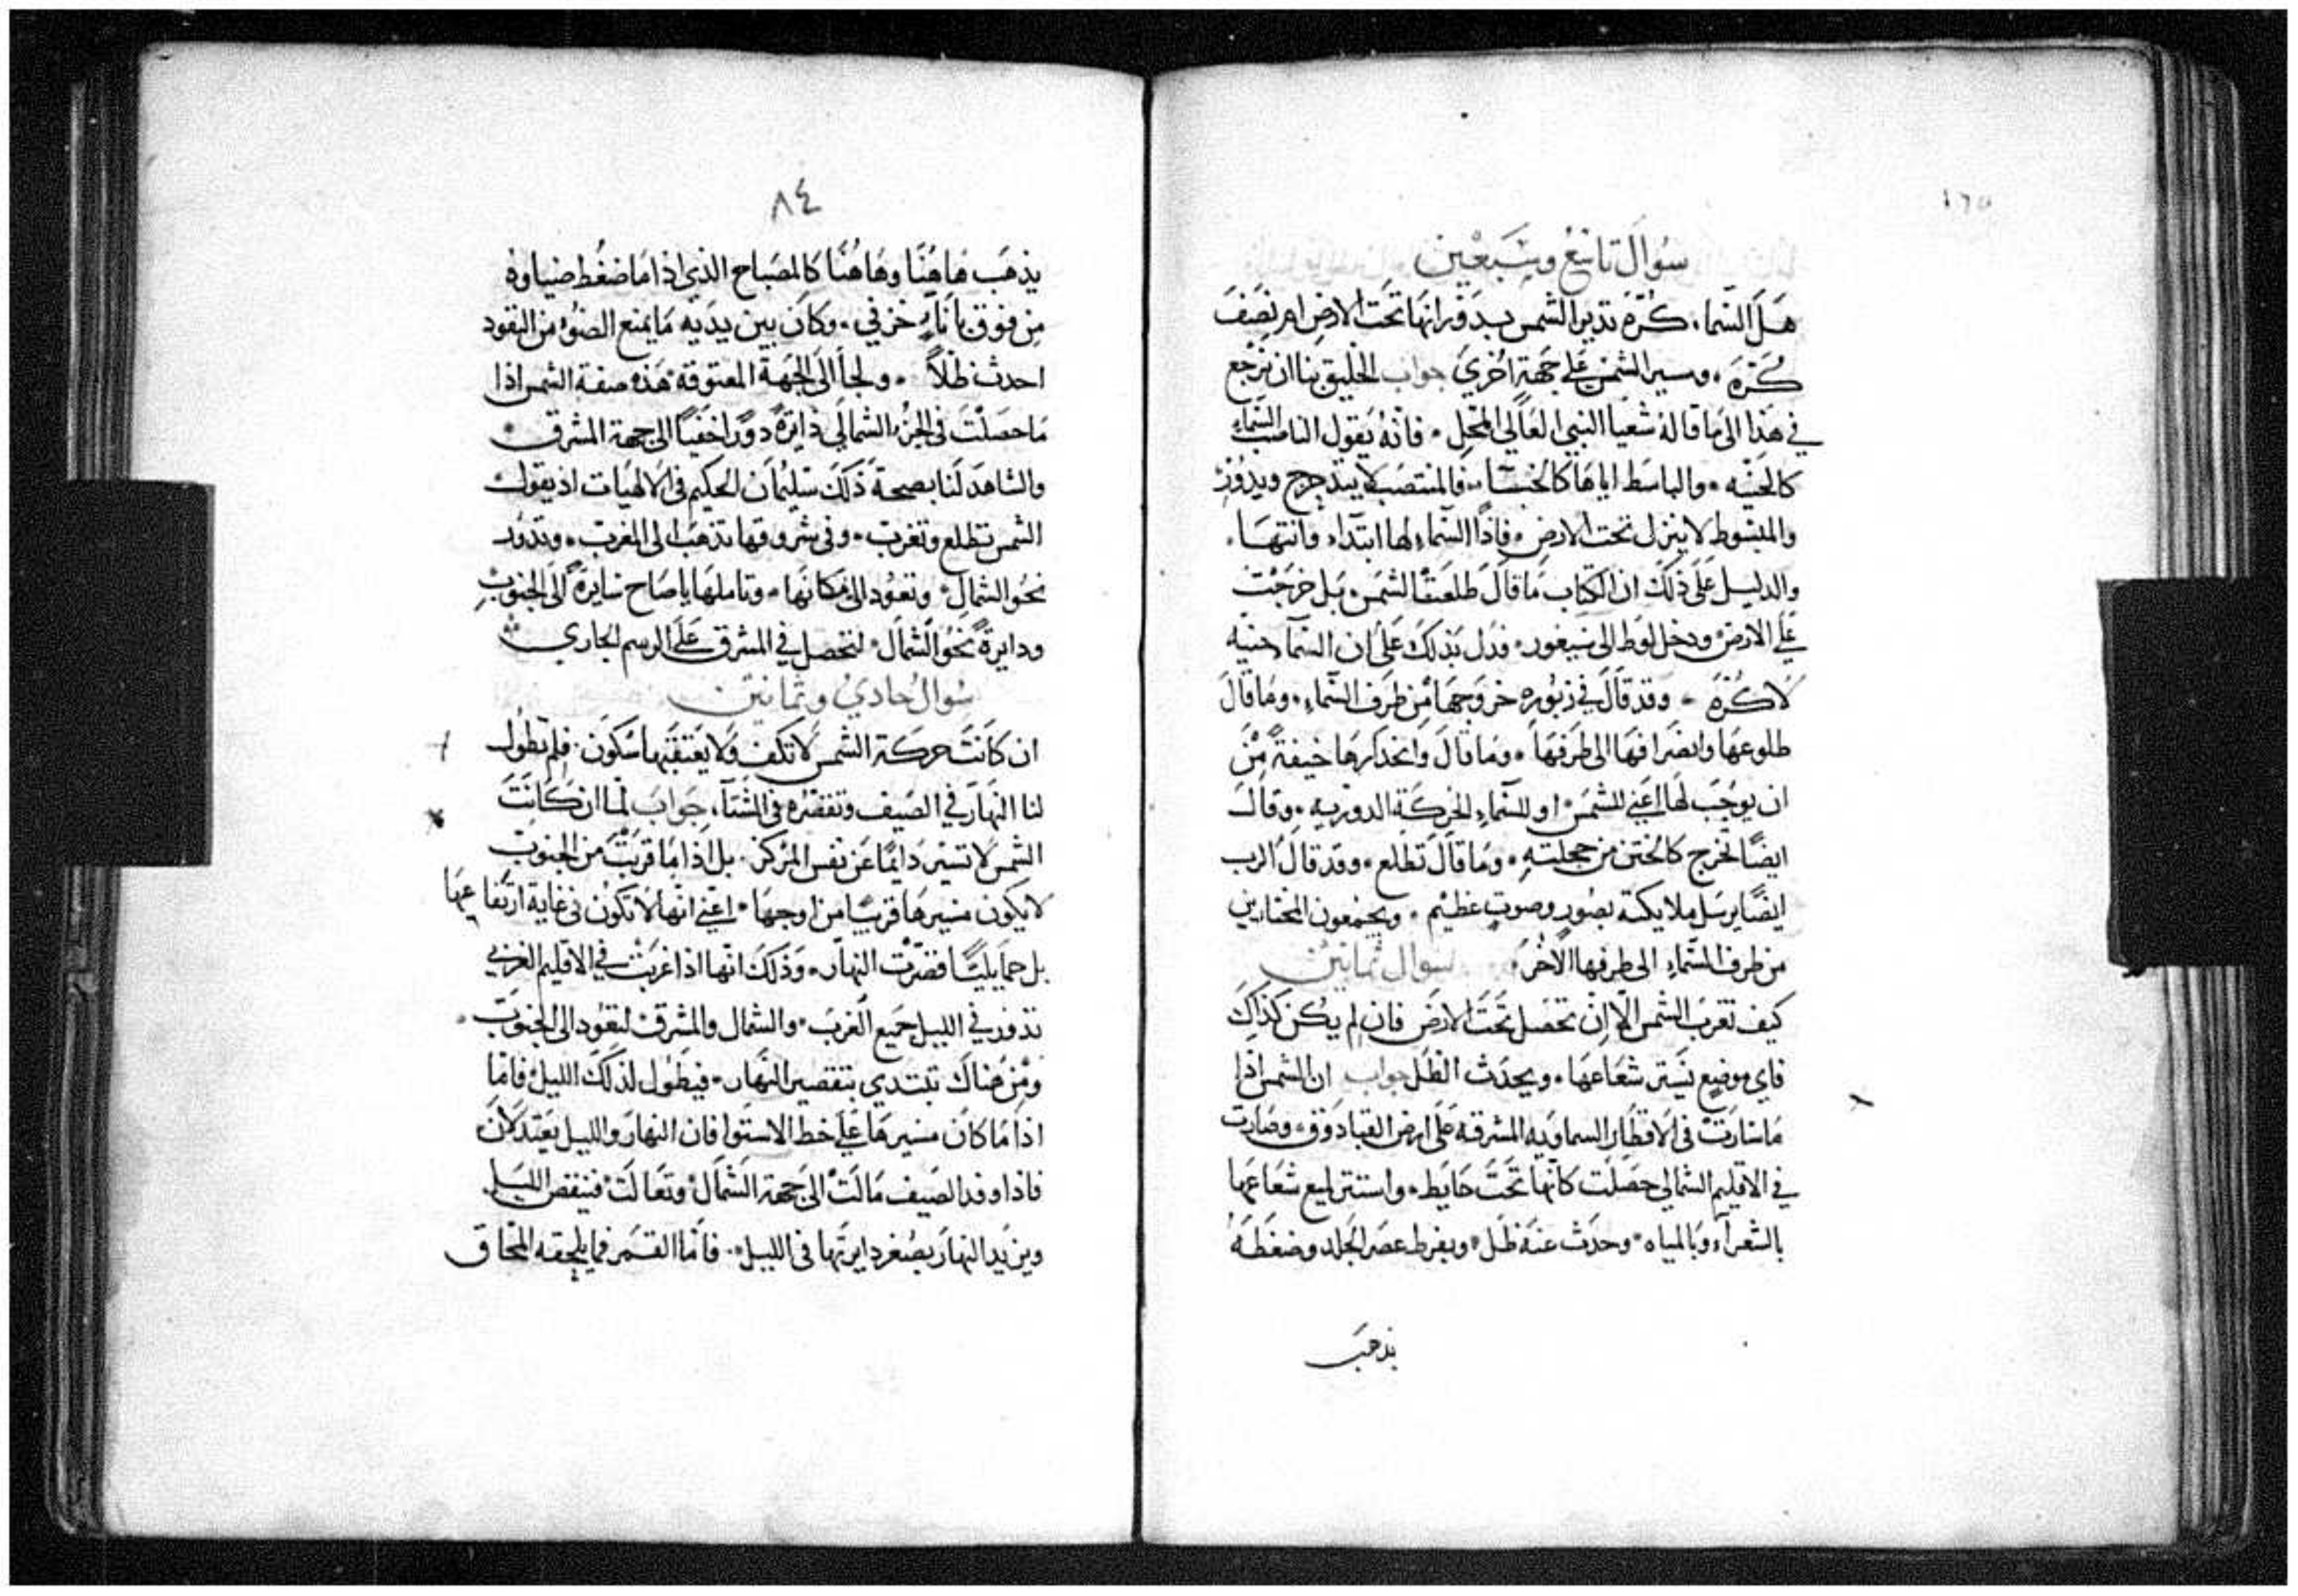 سوال تاسع وسبعين
هل السماء كرة تدير الشمس بدورانها تحت الارض ام نصف
كرة، ومسير الشمس على جهة اخري جواب الخليق بنا ان نرجع
في هذا الى ما قاله شعيا النبي العالي المحل فانه يقول الناصب السماء
كالحنيه والباسط اياها كالخبا فالمنتصب لا يتدحرج ويدور
والمبسوط لا ينزل تحت الارض فاذا السماء لها ابتداء وانتها
والدليل على ذلك ان الكتاب ما قال طلعت الشمس بل خرجت
علي الارض ودخل لوط الى سيغور فدل بذلك على ان السما حنيه
لا كرة وقد قال في زبوره خروجها من طرف السماء وما قال
طلوعها وانصرافها الى طرفها وما قال وانحدارها خيفة من
ان يوجب لها اعني للشمس او للسماء الحركة الدوريه وقال
ايضا تخرج كالختن من حجلته وما قال تطلع وقد قال الرب
ايضا يرسل ملايكته بصور وصوت عظيم ويجمعون المختارين
من طرف السماء الى طرفها الاخر سوال ثمانين
كيف تغرب الشمس الا ان تحصل تحت الارض فان لم يكن كذلك
فاي موضع يستر شعاعها ويحدث الظل جواب ان الشمس اذا
ما سارت في الاقطار السماويه المشرقه على ارض القبادوق وصارت
في الاقليم الشمالي حصلت كانها تحت حايط واستتر لميع شعاعها
بالشعراء وبالمياه وحدث عنه ظل وبفرط عصر الجلد وضغطه
يذهب
٨٤
يذهب هاهنا وهاهنا كالمصباح الذي اذا ما ضغط ضياوه
من فوق باناء خزفي وكان بين يديه ما يمنع الضوء من النفود
احدث ظلا ولجأ الى الجهة المعتوقة هذه صفة الشمس اذا
ما حصلت في الجزء الشمالي دايرة دورا خفيا الى جهة المشرق
والشاهد لنا بصحة ذلك سليمان الحكيم في الالهيات اذ يقول
الشمس تطلع وتغرب وفي شروقها تذهب الى المغرب وتدور
نحو الشمال وتعود الى مكانها وتاملها يا صاح سايرة الى الجنوب
ودايرة نحو الشمال لتحصل في المشرق على الرسم الجاري
سوال حادي وثمانين
ان كانت حركة الشمس لا تكف ولا يعتقبها سكون فلم يطول
لنا النهار في الصيف وتقصره في الشتاء جواب لما ان كانت
الشمس لا تسير دايما عن نفس المركز بل اذا ما قربت من الجنوب
لا يكون مسيرها قريبا من اوجها اعني انها لا تكون في غاية ارتفاعها
بل حمايليا فقصرت النهار وذلك انها اذا غربت في الاقليم الغربي
تدور في الليل جميع الغرب والشمال والمشرق لتعود الى الجنوب
ومن هناك تبتدي بتقصير النهار فيطول لذلك الليل فاما
اذا ما كان مسيرها على خط الاستوا فان النهار والليل يعتدلان
فاذا وفد الصيف مالت الى جهة الشمال وتعالت فينقص الليل
ويزيد النهار بصغر دايرتها في الليل فاما القمر فما يلحقه المحاق